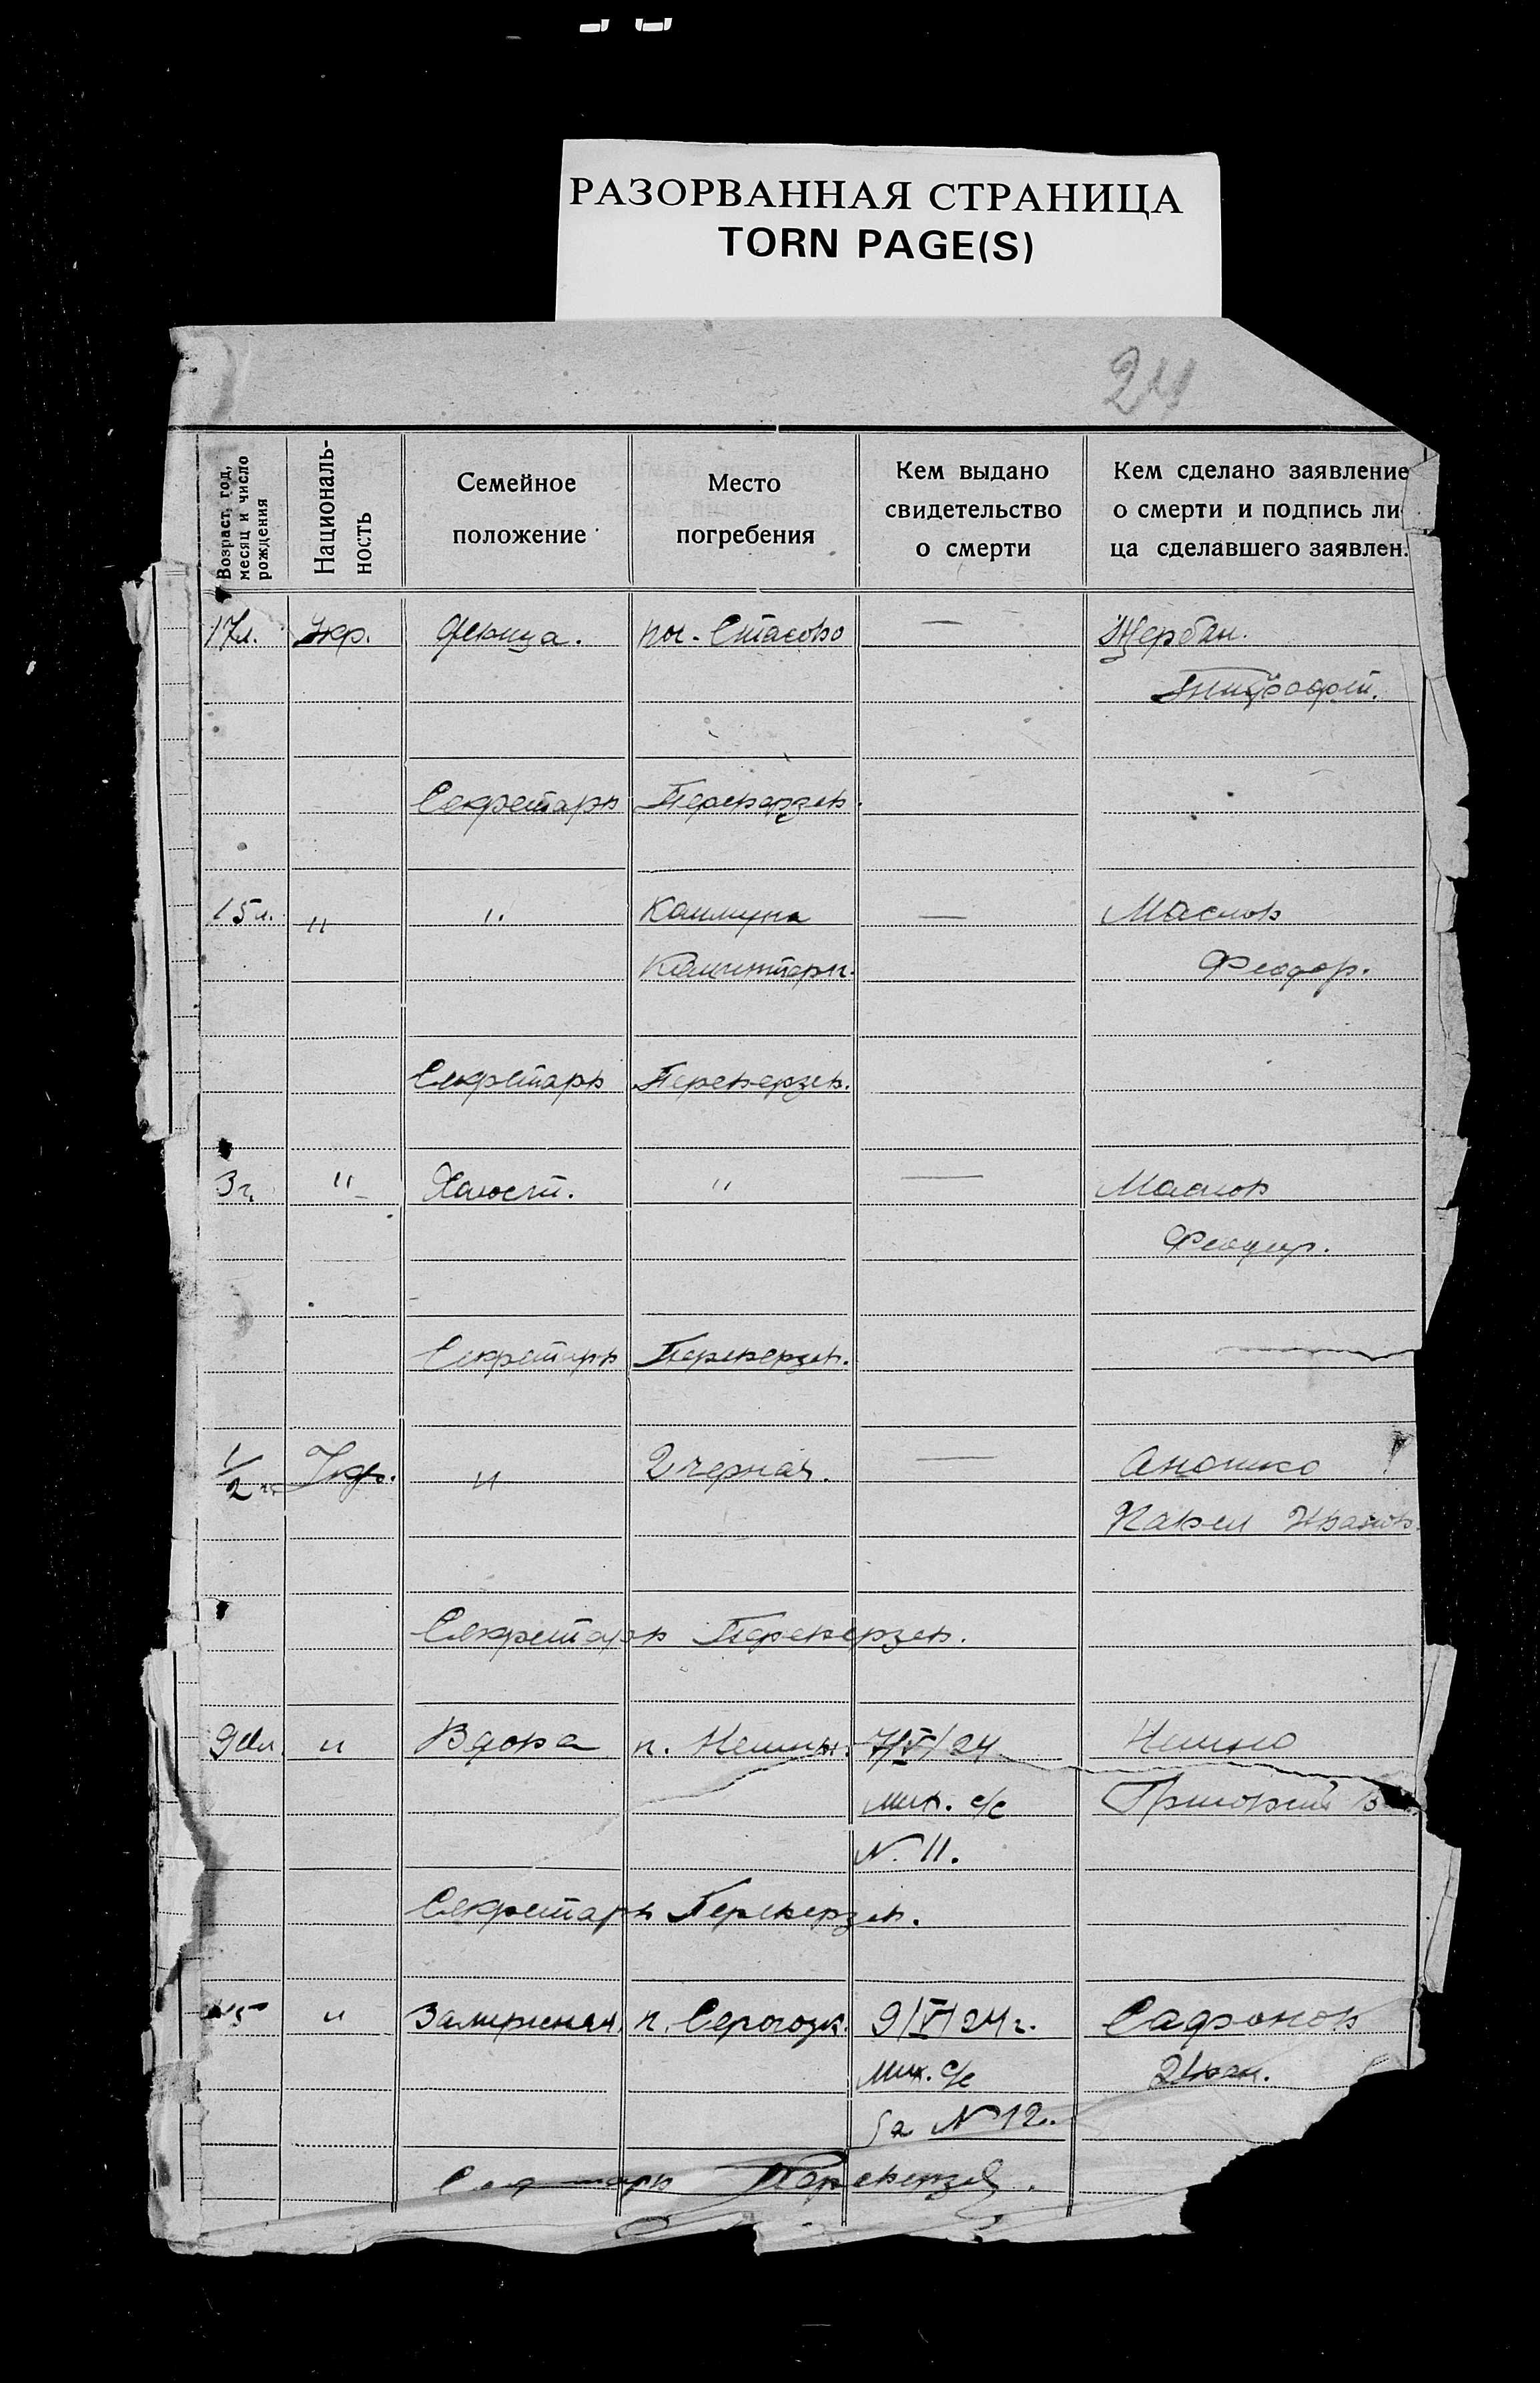 РАЗОРВАННАЯ СТРАНИЦА
TORN PAGE(S)
24
Возраст, год,
месяц и число
рождения
Националь-
ность
Семейное
положение
Место
погребения
Кем выдано
свидетельство
о смерти
Кем сделано заявление
о смерти и подпись ли-
ца сделавшего заявлен.
17л. Укр. девица. пос. Стасово — Щербан.
Секретарь Переверзев.
15 л. " " Коммуна — Маслов
Коминтерн. Феодор.
Секретарь Переверзев.
3 г. " Холост. " — Маслов
Феодор.
Секретарь Переверзев.
1/2 г. Укр. " — Аношко
Павел Иванов.
Секретарь Переверзев.
90л. " Вдова п. 7/V/24
мих. с/с Григорий
N. 11.
Секретарь Переверзев.
45 " Замужняя. п. Серогозк. 9/V/24 г. Сафонов
Мих. с/с
за N 12.
Секретарь Переверзев.